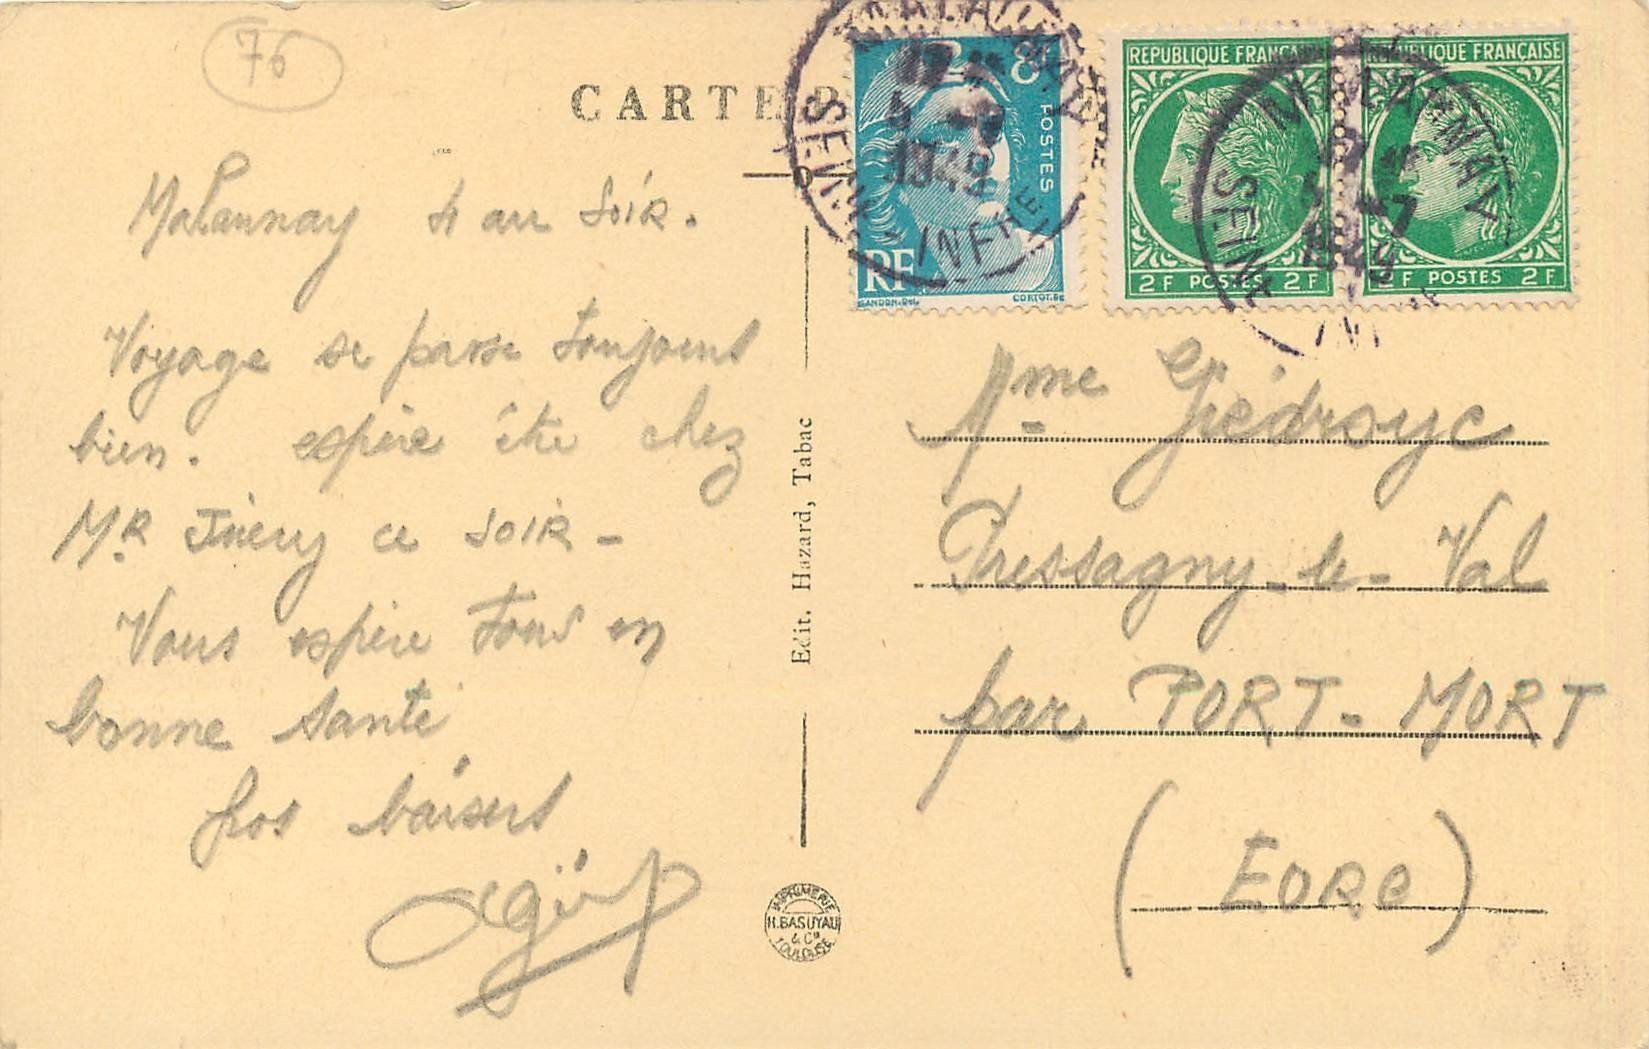 76
CARTE P
Malaunay 4 au soir.
Voyage se passe toujours
bien. espère être chez
Mr Jnery ce soir -
Vous espère tous en
bonne santé
Gros baisers
Edit. Hazard, Tabac
IMPRIMERIE
H. BASUYAU
& Cie
TOULOUSE
8F
POSTES
RF
GANDON.DEL
CORTOT.SC
MALAUNAY
5 -7
1949
SEINE INFRE
REPUBLIQUE FRANÇAISE
2F POSTES 2F
REPUBLIQUE FRANÇAISE
2F POSTES 2F
MALAUNAY
5 -7
1949
SEINE
Mme Giédroyc
Pressagny-le-Val
par PORT-MORT
(EURE)